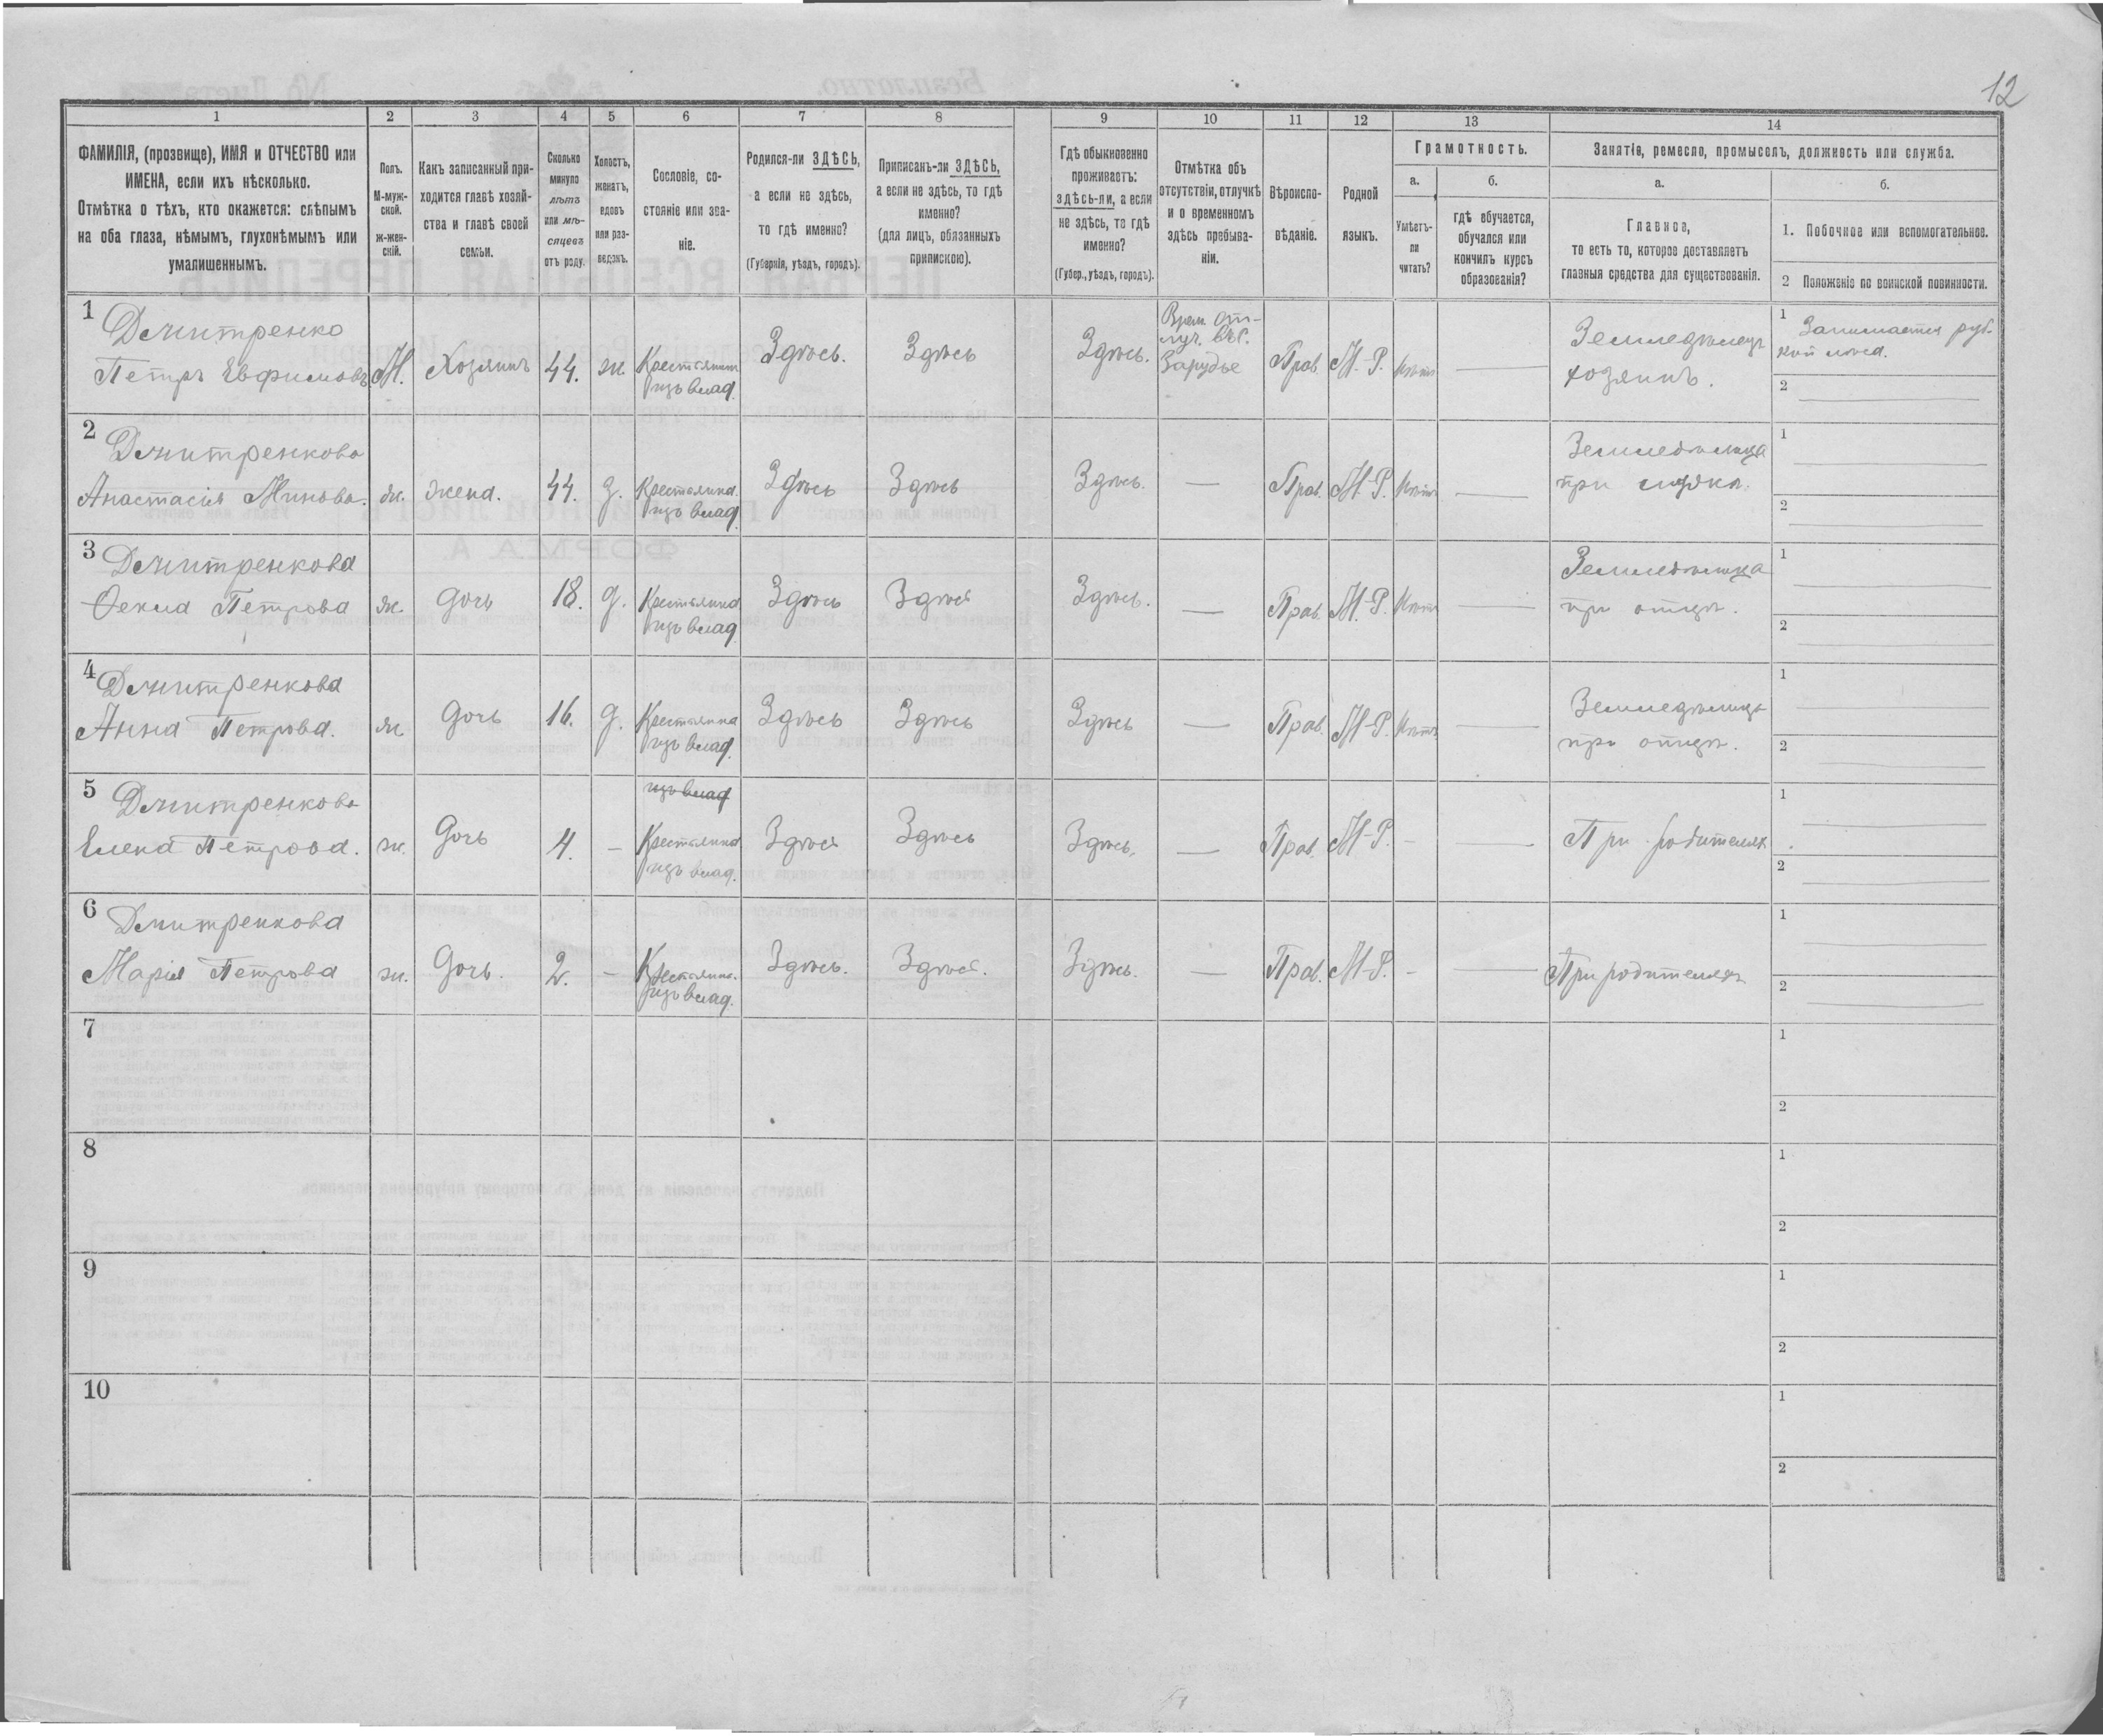 12
1 2 3 4 5 6 7 8 9 10 11 12 13 14
ФАМИЛІЯ, (прозвище), ИМЯ и ОТЧЕСТВО или
ИМЕНА, если ихъ нѣсколько.
Отмѣтка о тѣхъ, кто окажется: слѣпымъ
на оба глаза, нѣмымъ, глухонѣмымъ или
умалишеннымъ.
Полъ.
М-муж-
ской.
Ж-жен-
скій.
Какъ записанный при-
ходится главѣ хозяй-
ства и главѣ своей
семьи.
Сколько
минуло
лѣтъ
или мѣ-
сяцевъ
отъ роду.
Холостъ,
женатъ,
вдовъ
или раз-
веденъ.
Сословіе, со-
стояніе или зва-
ніе.
Родился-ли ЗДѢСЬ,
а если не здѣсь,
то гдѣ именно?
(Губернія, уѣздъ, городъ).
Приписанъ-ли ЗДѢСЬ,
а если не здѣсь, то гдѣ
именно?
(для лицъ, обязанныхъ
припискою).
Гдѣ обыкновенно
проживаетъ:
здѣсь-ли, а если
не здѣсь, то гдѣ
именно?
(Губер., уѣздъ, городъ).
Отмѣтка объ
отсутствіи, отлучкѣ
и о временномъ
здѣсь пребыва-
ніи.
Вѣроиспо-
вѣданіе.
Родной
языкъ.
Грамотность.
а.
Умѣетъ-
ли
читать?
б.
гдѣ обучается,
обучался или
кончилъ курсъ
образованія?
Занятіе, ремесло, промыселъ, должность или служба.
а.
Главное,
то есть то, которое доставляетъ
главныя средства для существованія.
б.
1. Побочное или вспомогательное.
2 Положеніе по воинской повинности.
1
Дмитренко
Петръ Евфимовъ
М.
Хозяинъ
44.
ж.
Крестьянин
изъ влад.
Здѣсь.
Здѣсь
Здѣсь.
Врем. от-
луч. въ с.
Зарудье
Прав.
М.-Р.
Нѣтъ
Земледѣлецъ
хозяинъ.
1 Занимается руб-
кой лѣса.
2
2
Дмитренкова
Анастасія Минова.
ж.
жена.
44.
з.
Крестьянка
изъ влад.
Здѣсь
Здѣсь
Здѣсь.
Прав.
М-Р.
Нѣтъ
Земледѣлица
при мужѣ.
1
2
3
Дмитренкова
Ѳекла Петрова
ж.
дочь
18.
д.
Крестьянка
изъ влад.
Здѣсь
Здѣсь
Здѣсь.
Прав.
М.-Р.
Нѣтъ
Земледѣлица
при отцѣ.
1
2
4
Дмитренкова
Анна Петрова.
ж.
дочь
16.
д.
Крестьянка
изъ влад.
Здѣсь
Здѣсь
Здѣсь
Прав.
М-Р.
Нѣтъ
Земледѣлица
при отцѣ.
1
2
5
Дмитренкова
Елена Петрова.
ж.
дочь
4.
изъ влад
Крестьянка
изъ влад.
Здѣсь
Здѣсь
Здѣсь.
Прав.
М-Р.
При родителях
1
2
6
Дмитренкова
Марія Петрова
ж.
дочь.
2.
Крестьянка.
изъ влад.
Здѣсь.
Здѣсь.
Здѣсь.
Прав.
М-Р.
При родителях
1
2
7
1
2
8
1
2
9
1
2
10
1
2